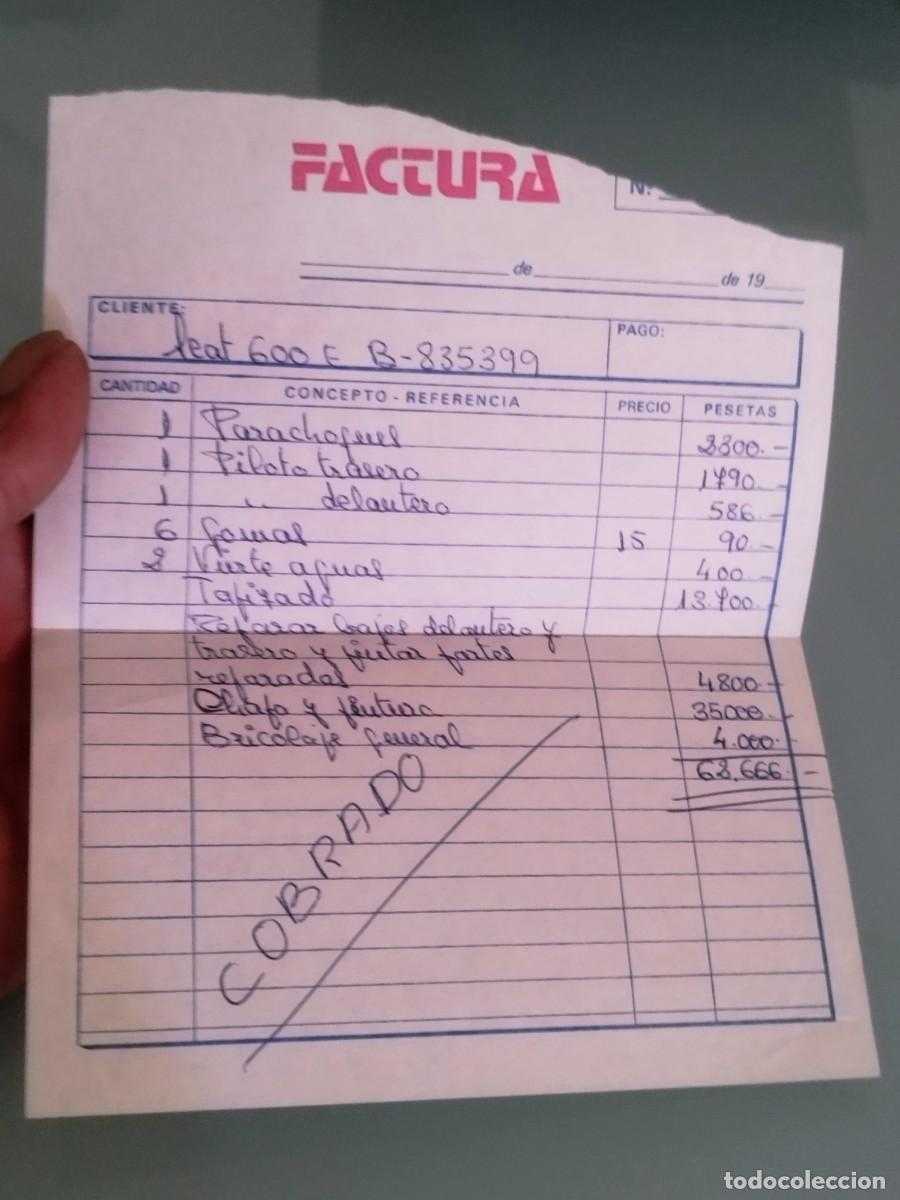 FACTURA
N.º
de de 19
CLIENTE:
Seat 600 E B-835399
PAGO:
CANTIDAD CONCEPTO - REFERENCIA PRECIO PESETAS
1 Parachoques 2300.-
1 Piloto trasero 1790.-
1 " delantero 586.-
6 Gomas 15 90.-
2 Vierte aguas 400.-
Tapizado 13.700.-
Reparar bajos delantero y
trasero y pintar partes
reparadas 4800.-
Chapa y pintura 35000.-
Bricolaje general 4.000.-
62.666.-
COBRADO
todocoleccion